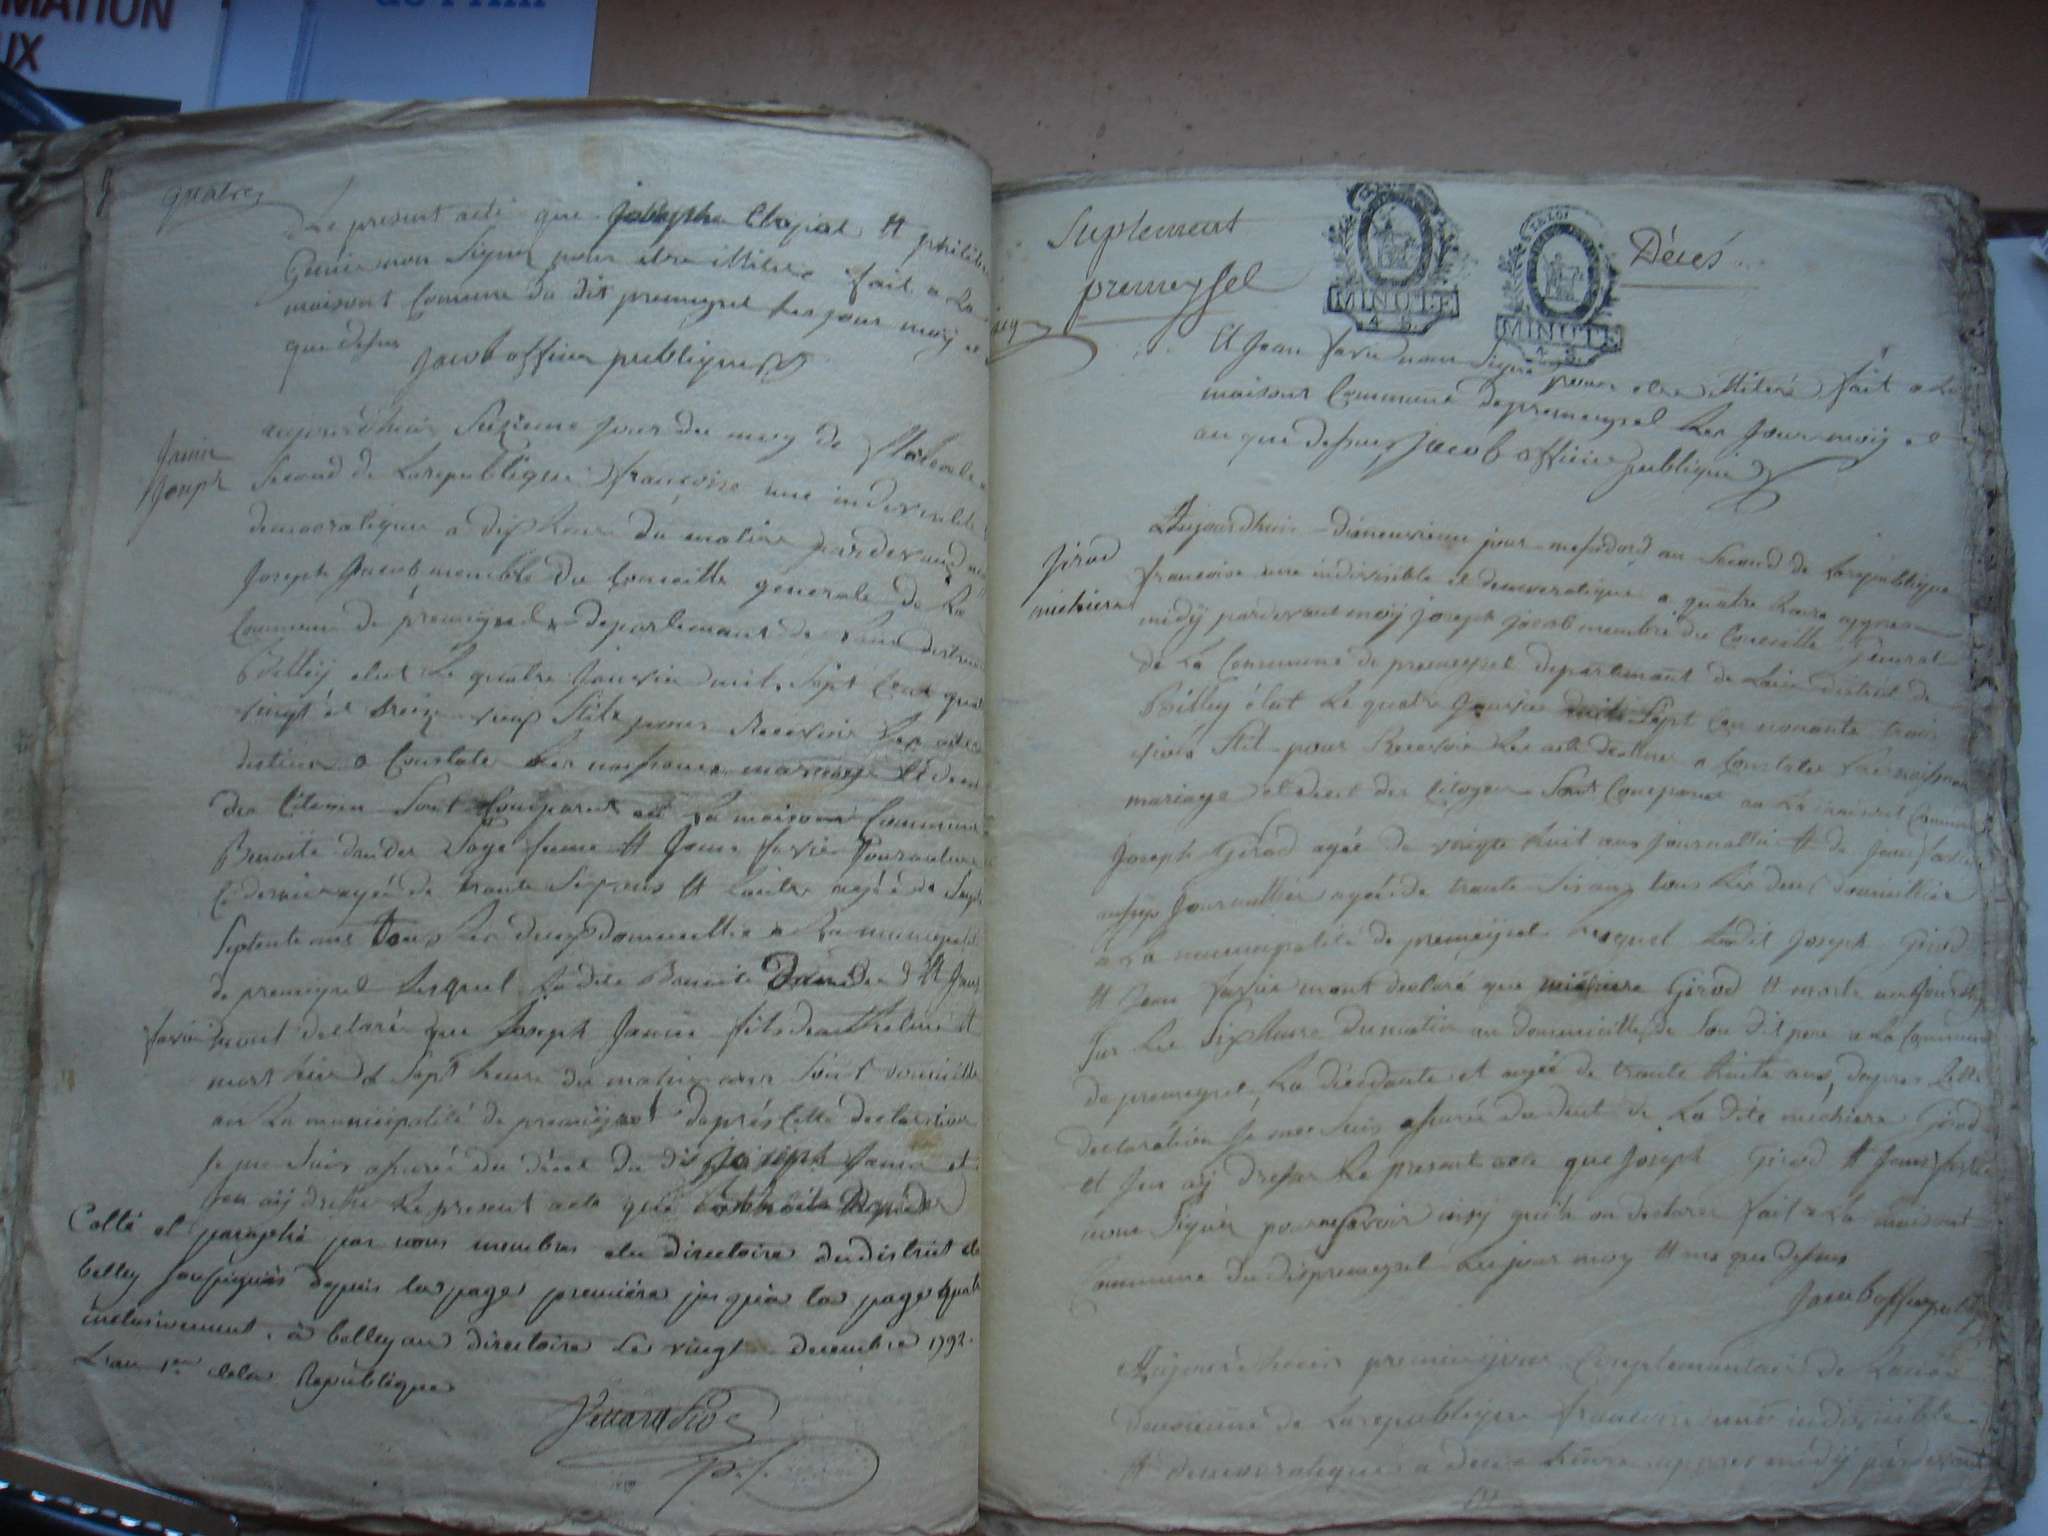 MATION
UX
quatre
Le present acte que Joseph Clapat et
Genie non Signer pour etre illitere fait a La
maisont Comune du dit premeysel les jour moy et
que desus
Jacob officier publique
Janin
Joseph
aujourdhuis Sezieme jour du moy de floreale
Second de La republique françoise une indivisible
democratique a dix heure du matin pardevand moy
Joseph Jacob membre du Conseille generale de La
Commune de premeysel departemant de Lain destrict
Belley elut Le quatre Janvier mil Sept Cent quatre
vingt et treize vieux Stile pour Recevoir Les actes
destiner a Constater Les naissance mariage et deces
des Citoyens Sont Comparut au La maison Commune
Benoite dauder Sage femme et Jean favier Journalier
Ce dernier agée de trante Six ans et Lautre agée de
Septente ans tous Les deux domicillié a La municipalité
de premeysel Lesquel La dite Benoite Dauder et Jean
favier mont declaré que Joseph Janin fils de anthelme et
mort hier a Sept heure du matin dans Sont domicille
au La municipalité de premeysel daprés Cette declaration
Je me Suis assurée du décet du dit Joseph Janin et
Jen aÿ dressé Le present acte que Benoite Dauder
Cotté et paraphé par nous membres du directoire du district de
belley soussignés depuis la page premiére jusquà la page quatre
inclusivement. à belley au directoire le vingt decembre 1792.
L'an 1er de la Republique
Suplement
premeyssel
MINUTE
4 S
LA LOI
MINUTE
4 S
Décés
et Jean favier non Signé pour etre illiteré fait a La
maisont Commune de premeysel Les Jour moy et
an que desus Jacob officier publique
Girod
michiere
Aujourdhuis dixneuvieme jour mesidord an Second de Larepublique
francoise une indivisible et democratique a quatre heure apprés
midÿ pardevant moy Joseph Jacob membre du Conseille General
de La Commune de premeysel departemant de Lain district de
Belley élut Le quatre Janvier mille Sept Cen nonante trois
vieux Stil pour Recevoir Les acte destiner a Constater Les naissance
mariage et decet des Citoyens Sont Comparut au La maisont Commune
Joseph Girod agée de vingte huit ans Journallier et de Jean favier
aussy Journallier agée de trante Six ans tous Les deux domicillier
a La municipalité de premeysel Lesquel Ledit Joseph Girod
et Jean favier mont declaré que michiere Girod et morte aujourdhuy
Sur Les Six heure du matin au domicille de Son dit pere a La Commune
de premeysel, La décédante et agée de trante huite ans, dapres Cette
declaration Je me Suis assurée du decet de La dite michiere Girod
et Jen aÿ dresser Le present acte que Joseph Girod et Jean favier
non Signer pour ne Savoir insy quils on declarer fait a La maisont
Commune du dis premeysel Les jour moy et an que desus
Jacob officier public
Aujourdhuis premier jour Complementair de Lanée
deuxieme de Larepublique francoise une indivisible
et democratique a deux heure appres midÿ pardevant